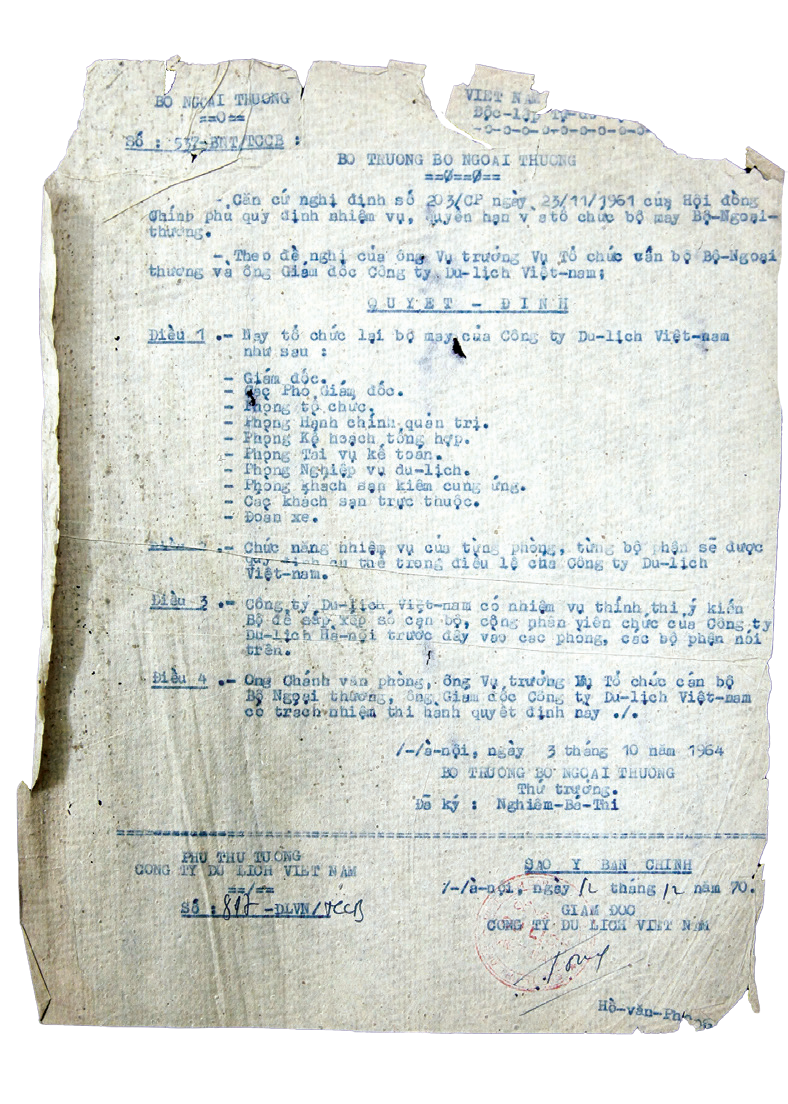 BỘ NGOẠI THƯƠNG
==O==
Số : 537-BNT/TCCB :
VIỆT NAM
Độc-lập Tự-do
-o-o-o-o-o-o-o-o-
BỘ TRƯỞNG BỘ NGOẠI THƯƠNG
==Ø==Ø==
- Căn cứ nghị định số 203/CP ngày 23/11/1961 của Hội đồng
Chính phủ quy định nhiệm vụ, quyền hạn v stổ chức bộ máy Bộ-Ngoại-
thương.
- Theo đề nghị của ông Vụ trưởng Vụ Tổ chức cán bộ Bộ-Ngoại
thương và ông Giám đốc Công ty Du-lịch Việt-nam;
QUYẾT - ĐỊNH
Điều 1 .- Nay tổ chức lại bộ máy của Công ty Du-lịch Việt-nam
như sau :
- Giám đốc.
- Các Phó Giám đốc.
- Phòng tổ chức.
- Phòng Hành chính quản trị.
- Phòng Kế hoạch tổng hợp.
- Phòng Tài vụ kế toán.
- Phòng Nghiệp vụ du-lịch.
- Phòng khách sạn kiêm cung ứng.
- Các khách sạn trực thuộc.
- Đoàn xe.
Điều 2 .- Chức năng nhiệm vụ của từng phòng, từng bộ phận sẽ được
quy định cụ thể trong điều lệ của Công ty Du-lịch
Việt-nam.
Điều 3 .- Công ty Du-lịch Việt-nam có nhiệm vụ thỉnh thị ý kiến
Bộ để sắp xếp số cán bộ, công nhân viên chức của Công ty
Du-lịch Hà-nội trước đây vào các phòng, các bộ phận nói
trên.
Điều 4 .- Ông Chánh văn phòng, ông Vụ trưởng Vụ Tổ chức cán bộ
Bộ Ngoại thương, ông Giám đốc Công ty Du-lịch Việt-nam
có trách nhiệm thi hành quyết định này ./.
/-/à-nội, ngày 3 tháng 10 năm 1964
BỘ TRƯỞNG BỘ NGOẠI THƯƠNG
Thứ trưởng.
Đã ký : Nghiêm-Bá-Thi
PHỦ THỦ TƯỚNG
CÔNG TY DU LỊCH VIỆT NAM
==/==
Số : 817 -DLVN/TCCB
SAO Y BẢN CHÍNH
/-/à-nội, ngày 12 tháng 12 năm 70.
GIÁM ĐỐC
CÔNG TY DU LỊCH VIỆT NAM
Hồ-văn-